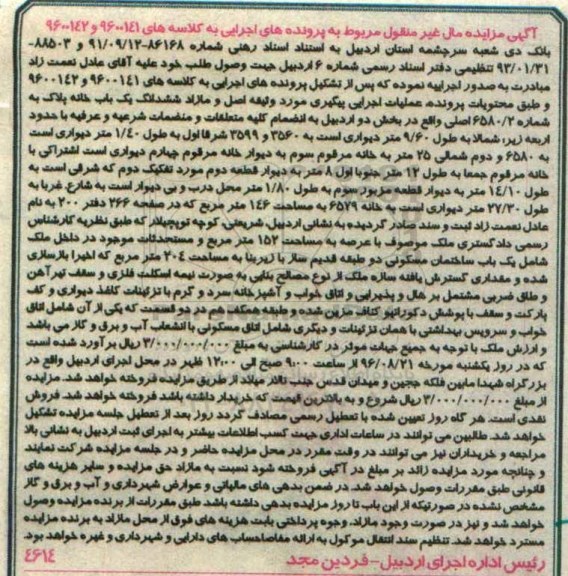 آگهی مزایده مال غیر منقول مربوط به پرونده های اجرایی به کلاسه های ۹۶۰۰۱۴۱ و ۹۶۰۰۱۴۲
بانک دی شعبه سرچشمه استان اردبیل به استناد اسناد رهنی شماره ۸۶۱۶۸-۹۱/۰۹/۱۲ و ۸۸۵۰۳-
۹۳/۰۱/۳۱ تنظیمی دفتر اسناد رسمی شماره ۶ اردبیل جهت وصول طلب خود علیه آقای عادل نعمت زاد
مبادرت به صدور اجراییه نموده که پس از تشکیل پرونده های اجرایی به کلاسه های ۹۶۰۰۱۴۱ و ۹۶۰۰۱۴۲
و طبق محتویات پرونده، عملیات اجرایی پیگیری مورد وثیقه اصل و مازاد ششدانگ یک باب خانه پلاک به
شماره ۶۵۸۰/۲ اصلی واقع در بخش دو اردبیل به انضمام کلیه متعلقات و منضمات شرعیه و عرفیه با حدود
اربعه زیر: شمالا به طول ۹/۶۰ متر دیواری است به ۳۵۶۰ و ۳۵۹۹ شرقا اول به طول ۱/۴۰ متر دیواری است
به ۶۵۸۰ و دوم شمالی ۲۵ متر به خانه مرقوم سوم به دیوار خانه مرقوم چهارم دیواری است اشتراکی با
خانه مرقوم جمعا به طول ۱۲ متر جنوبا اول ۸ متر به دیوار قطعه دوم مورد تفکیک دوم که شرقی است به
طول ۱۴/۱۰ متر به دیوار قطعه مزبور سوم به طول ۱/۸۰ متر محل درب و بی دیوار است به شارع غربا به
طول ۲۷/۳۰ متر دیواری است به خانه ۶۵۷۹ به مساحت ۱۴۶ متر مربع که در صفحه ۲۶۶ دفتر ۲۰۰ به نام
عادل نعمت زاد ثبت و سند صادر گردیده به نشانی اردبیل، شریعتی، کوچه توپچیلار که طبق نظریه کارشناس
رسمی دادگستری ملک موصوف با عرصه به مساحت ۱۵۲ متر مربع و مستحدثات موجود در داخل ملک
شامل یک باب ساختمان مسکونی دو طبقه قدیم ساز با زیربنا به مساحت ۲۰۴ متر مربع که اخیرا بازسازی
شده و مقداری گسترش یافته سازه ملک از نوع مصالح بنایی به صورت نیمه اسکلت فلزی و سقف تیرآهن
و طاق ضربی مشتمل بر هال و پذیرایی و اتاق خواب و آشپزخانه سرد و گرم با تزئینات کاغذ دیواری و کف
پارکت و سقف با پوشش دکوراتیو کناف مزین شده و طبقه همکف هم در دو قسمت که یکی از آن شامل اتاق
خواب و سرویس بهداشتی با همان تزئینات و دیگری شامل اتاق مسکونی با انشعاب آب و برق و گاز می باشد
و ارزش ملک با توجه به جمیع جهات موثر در کارشناسی به مبلغ ۳/۰۰۰/۰۰۰/۰۰۰ ریال برآورد شده است
که در روز یکشنبه مورخه ۹۶/۰۸/۲۱ از ساعت ۹:۰۰ صبح الی ۱۲:۰۰ ظهر در محل اجرای اردبیل واقع در
بزرگراه شهدا مابین فلکه ججین و میدان قدس جنب تالار میلاد از طریق مزایده فروخته خواهد شد. مزایده
از مبلغ ۳/۰۰۰/۰۰۰/۰۰۰ ریال شروع و به بالاترین قیمت که خریدار داشته باشد فروخته خواهد شد. فروش
نقدی است. هر گاه روز تعیین شده با تعطیل رسمی مصادف گردد روز بعد از تعطیل جلسه مزایده تشکیل
خواهد شد. طالبین می توانند در ساعات اداری جهت کسب اطلاعات بیشتر به اجرای ثبت اردبیل به نشانی بالا
مراجعه و خریداران نیز می توانند در وقت مقرر در محل مزایده حاضر و در جلسه مزایده شرکت نمایند
و چنانچه مورد مزایده زائد بر مبلغ در آگهی فروخته شود نسبت به مازاد حق مزایده و سایر هزینه های
قانونی طبق مقررات وصول خواهد شد. در ضمن بدهی های مالیاتی و عوارض شهرداری و آب و برق و گاز
مشخص نشده در صورتیکه از این باب تا روز مزایده بدهی داشته باشد طبق مقررات از برنده مزایده وصول
خواهد شد و نیز در صورت وجود مازاد، وجوه پرداختی بابت هزینه های فوق از محل مازاد به برنده مزایده
مسترد خواهد شد. تنظیم سند انتقال موکول به ارائه مفاصاحساب های دارایی و شهرداری و غیره خواهد بود.
رئیس اداره اجرای اردبیل-فردین مجد
۴۶۱۴